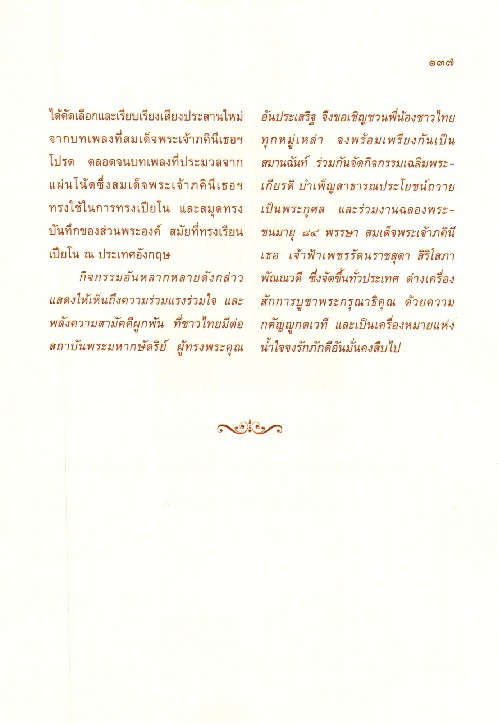 ๑๓๗
ได้คัดเลือกและเรียบเรียงเสียงประสานใหม่
จากบทเพลงที่สมเด็จพระเจ้าภคินีเธอฯ
โปรด ตลอดจนบทเพลงที่ประมวลจาก
แผ่นโน้ตซึ่งสมเด็จพระเจ้าภคินีเธอฯ
ทรงใช้ในการทรงเปียโน และสมุดทรง
บันทึกของส่วนพระองค์ สมัยที่ทรงเรียน
เปียโน ณ ประเทศอังกฤษ
กิจกรรมอันหลากหลายดังกล่าว
แสดงให้เห็นถึงความร่วมแรงร่วมใจ และ
พลังความสามัคคีผูกพัน ที่ชาวไทยมีต่อ
สถาบันพระมหากษัตริย์ ผู้ทรงพระคุณ
อันประเสริฐ จึงขอเชิญชวนพี่น้องชาวไทย
ทุกหมู่เหล่า จงพร้อมเพรียงกันเป็น
สมานฉันท์ ร่วมกันจัดกิจกรรมเฉลิมพระ-
เกียรติ บำเพ็ญสาธารณประโยชน์ถวาย
เป็นพระกุศล และร่วมงานฉลองพระ-
ชนมายุ ๘๔ พรรษา สมเด็จพระเจ้าภคินี
เธอ เจ้าฟ้าเพชรรัตนราชสุดา สิริโสภา
พัณณวดี ซึ่งจัดขึ้นทั่วประเทศ ต่างเครื่อง
สักการบูชาพระกรุณาธิคุณ ด้วยความ
กตัญญูกตเวที และเป็นเครื่องหมายแห่ง
น้ำใจจงรักภักดีอันมั่นคงสืบไป